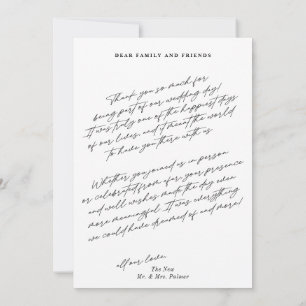 DEAR FAMILY AND FRIENDS
Thank you so much for
being part of our wedding day!
It was truly one of the happiest days
of our lives, and it meant the world
to have you there with us
Whether you joined us in person
or celebrated from afar, your presence
and well wishes made the day even
more meaningful. It was everything
we could have dreamed of and more!
all our love,
The New
Mr. & Mrs. Palmer